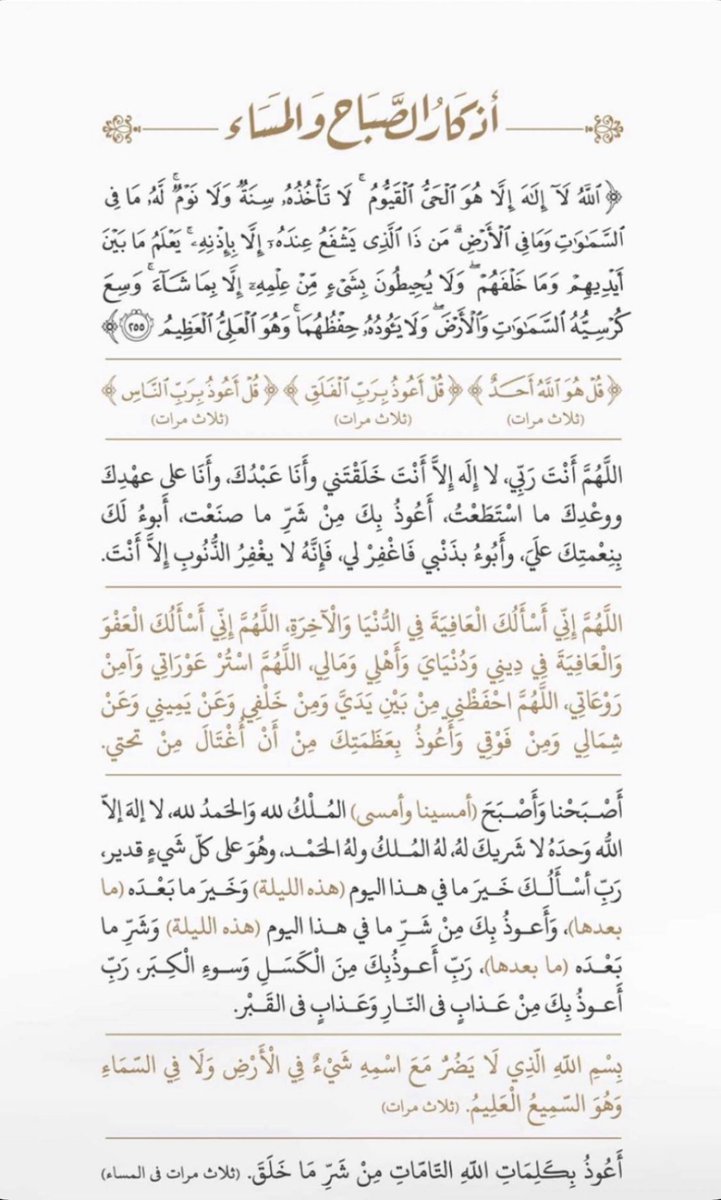 أذكار الصَّبَاح وَالمَسَاء
﴿ ٱللَّهُ لَآ إِلَٰهَ إِلَّا هُوَ ٱلْحَىُّ ٱلْقَيُّومُ ۚ لَا تَأْخُذُهُۥ سِنَةٌ وَلَا نَوْمٌ ۚ لَّهُۥ مَا فِى
ٱلسَّمَٰوَٰتِ وَمَا فِى ٱلْأَرْضِ ۗ مَن ذَا ٱلَّذِى يَشْفَعُ عِندَهُۥٓ إِلَّا بِإِذْنِهِۦ ۚ يَعْلَمُ مَا بَيْنَ
أَيْدِيهِمْ وَمَا خَلْفَهُمْ ۖ وَلَا يُحِيطُونَ بِشَىْءٍ مِّنْ عِلْمِهِۦٓ إِلَّا بِمَا شَآءَ ۚ وَسِعَ
كُرْسِيُّهُ ٱلسَّمَٰوَٰتِ وَٱلْأَرْضَ ۖ وَلَا يَـُٔودُهُۥ حِفْظُهُمَا ۚ وَهُوَ ٱلْعَلِىُّ ٱلْعَظِيمُ ٢٥٥ ﴾
﴿ قُلْ هُوَ ٱللَّهُ أَحَدٌ ﴾ ﴿ قُلْ أَعُوذُ بِرَبِّ ٱلْفَلَقِ ﴾ ﴿ قُلْ أَعُوذُ بِرَبِّ ٱلنَّاسِ ﴾
(ثلاث مرات) (ثلاث مرات) (ثلاث مرات)
اللَّهُمَّ أَنْتَ رَبِّي، لا إِلَه إِلاَّ أَنْتَ خَلَقْتَني وأَنَا عَبْدُكَ، وأَنَا على عهْدِكَ
ووعْدِكَ ما اسْتَطَعْتُ، أَعُوذُ بِكَ مِنْ شَرِّ ما صنَعْت، أَبوءُ لَكَ
بِنِعْمتِكَ علَيَّ، وأَبُوءُ بذَنْبي فَاغْفِرْ لي، فَإِنَّهُ لا يغْفِرُ الذُّنُوبِ إِلاَّ أَنْتَ.
اللَّهُمَّ إِنِّي أَسْأَلُكَ الْعَافِيَةَ فِي الدُّنْيَا وَالْآخِرَةِ، اللَّهُمَّ إِنِّي أَسْأَلُكَ الْعَفْوَ
وَالْعَافِيَةَ فِي دِينِي وَدُنْيَايَ وَأَهْلِي وَمَالِي، اللَّهُمَّ اسْتُرْ عَوْرَاتِي وَآمِنْ
رَوْعَاتِي، اللَّهُمَّ احْفَظْنِي مِنْ بَيْنِ يَدَيَّ وَمِنْ خَلْفِي وَعَنْ يَمِينِي وَعَنْ
شِمَالِي وَمِنْ فَوْقِي وَأَعُوذُ بِعَظَمَتِكَ مِنْ أَنْ أُغْتَالَ مِنْ تحتي.
أَصْـبَحْنا وَأَصْـبَحَ (أمسينا وأمسى) المُـلْكُ لله وَالحَمدُ لله، لا إلهَ إلاّ
اللّه وَحدَهُ لا شَريكَ لهُ، لهُ المُـلكُ ولهُ الحَمْـد، وهُوَ على كلّ شَيءٍ قدير،
رَبِّ أسْـأَلُـكَ خَـيرَ ما في هـذا اليوم (هذه الليلة) وَخَـيرَ ما بَعْـدَه (ما
بعدها)، وَأَعـوذُ بِكَ مِنْ شَـرِّ ما في هـذا اليوم (هذه الليلة) وَشَرِّ ما
بَعْـدَه (ما بعدها)، رَبِّ أَعـوذُبِكَ مِنَ الْكَسَـلِ وَسـوءِ الْكِـبَر، رَبِّ
أَعـوذُ بِكَ مِنْ عَـذابٍ في النّـارِ وَعَـذابٍ في القَـبْر.
بِسْمِ اللهِ الَّذِي لَا يَضُرُّ مَعَ اسْمِهِ شَيْءٌ فِي الْأَرْضِ وَلَا فِي السَّمَاءِ
وَهُوَ السَّمِيعُ الْعَلِيمُ. (ثلاث مرات)
أَعُوذُ بِكَلِمَاتِ اللهِ التَّامَّاتِ مِنْ شَرِّ مَا خَلَقَ. (ثلاث مرات في المساء)